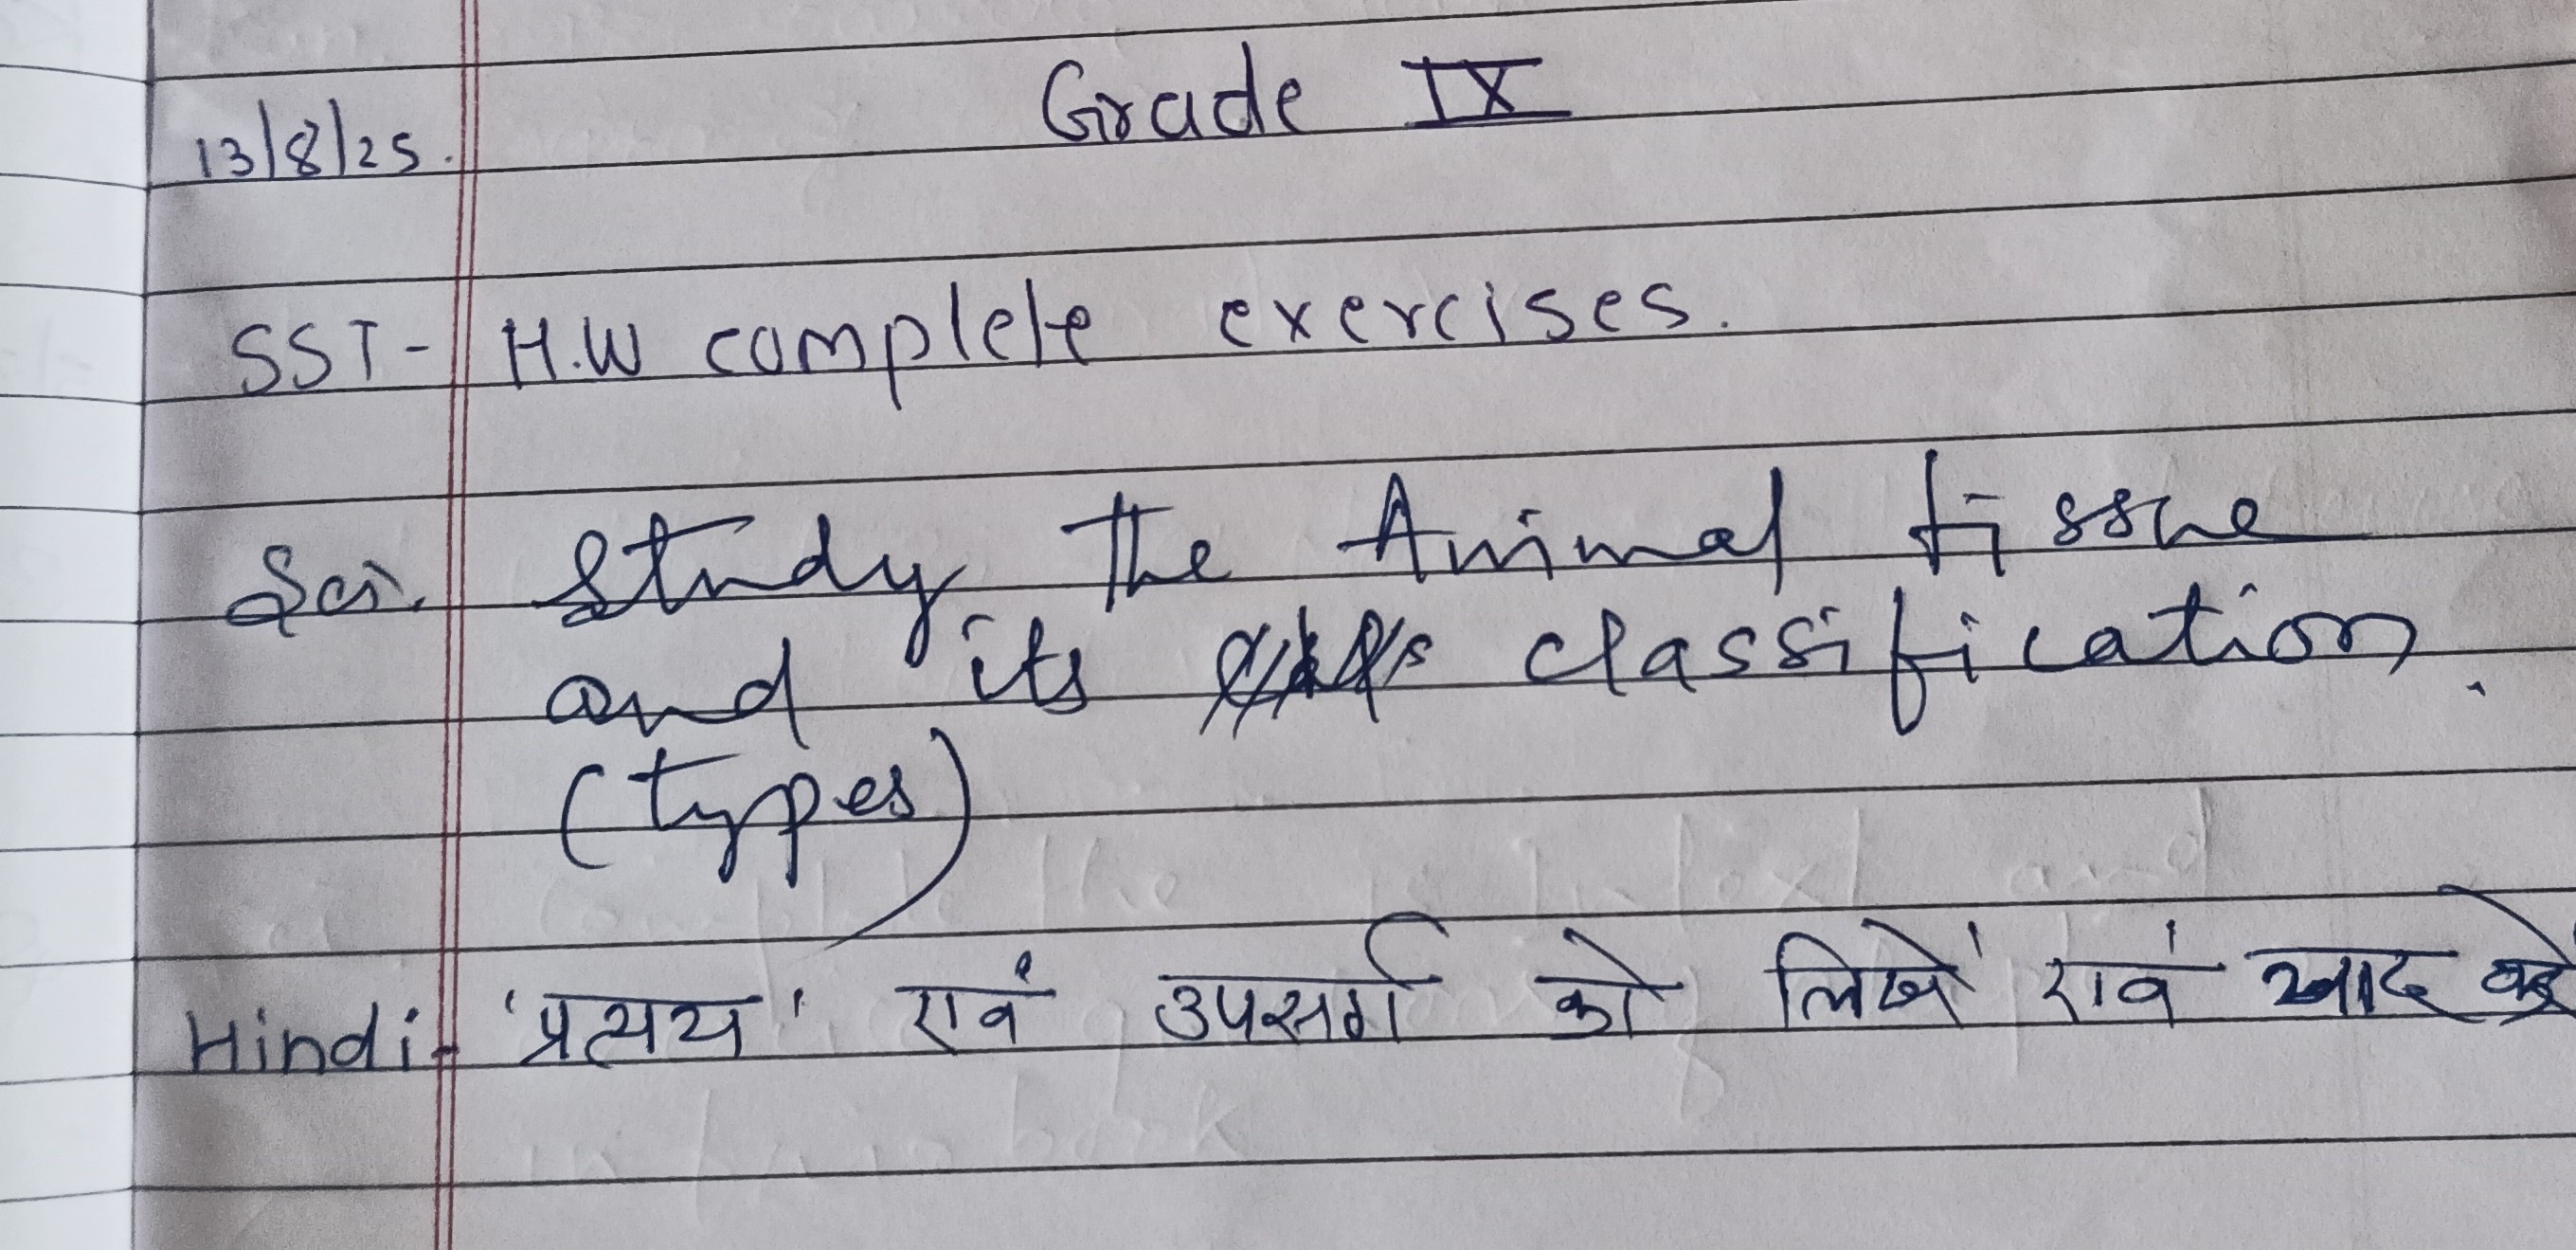 Grade IX
13/8/25.
SST- H.W complete exercises.
Sci. Study the Animal tissue
and its classification.
(types)
Hindi- 'प्रत्यय' एवं उपसर्ग को लिखें एवं याद करें